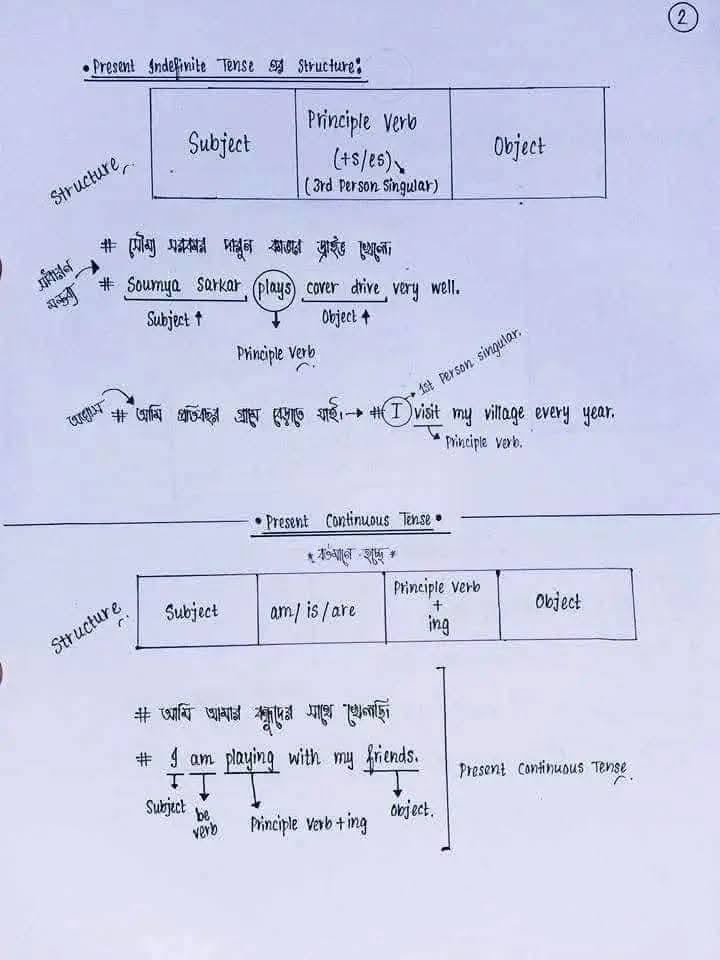 2
• Present Indefinite Tense এর Structure:
Structure
Subject
Principle Verb
(+s/es)
(3rd Person Singular)
Object
# সৌম্য সরকার দারুন কাভার ড্রাইভ খেলে।
সাধারন
মন্তব্য
# Soumya Sarkar plays cover drive very well.
Subject ↑
Object ↑
Principle Verb
1st Person singular.
অভ্যাস
# আমি প্রতিবছর গ্রামে বেড়াতে যাই। → # I visit my village every year.
Principle Verb.
• Present Continuous Tense •
* বর্তমানে হচ্ছে *
Structure
Subject
am/ is/are
Principle Verb
+
ing
Object
# আমি আমার বন্ধুদের সাথে খেলছি।
# I am playing with my friends.
Present Continuous Tense
Subject
be
verb
Principle Verb+ing
Object.